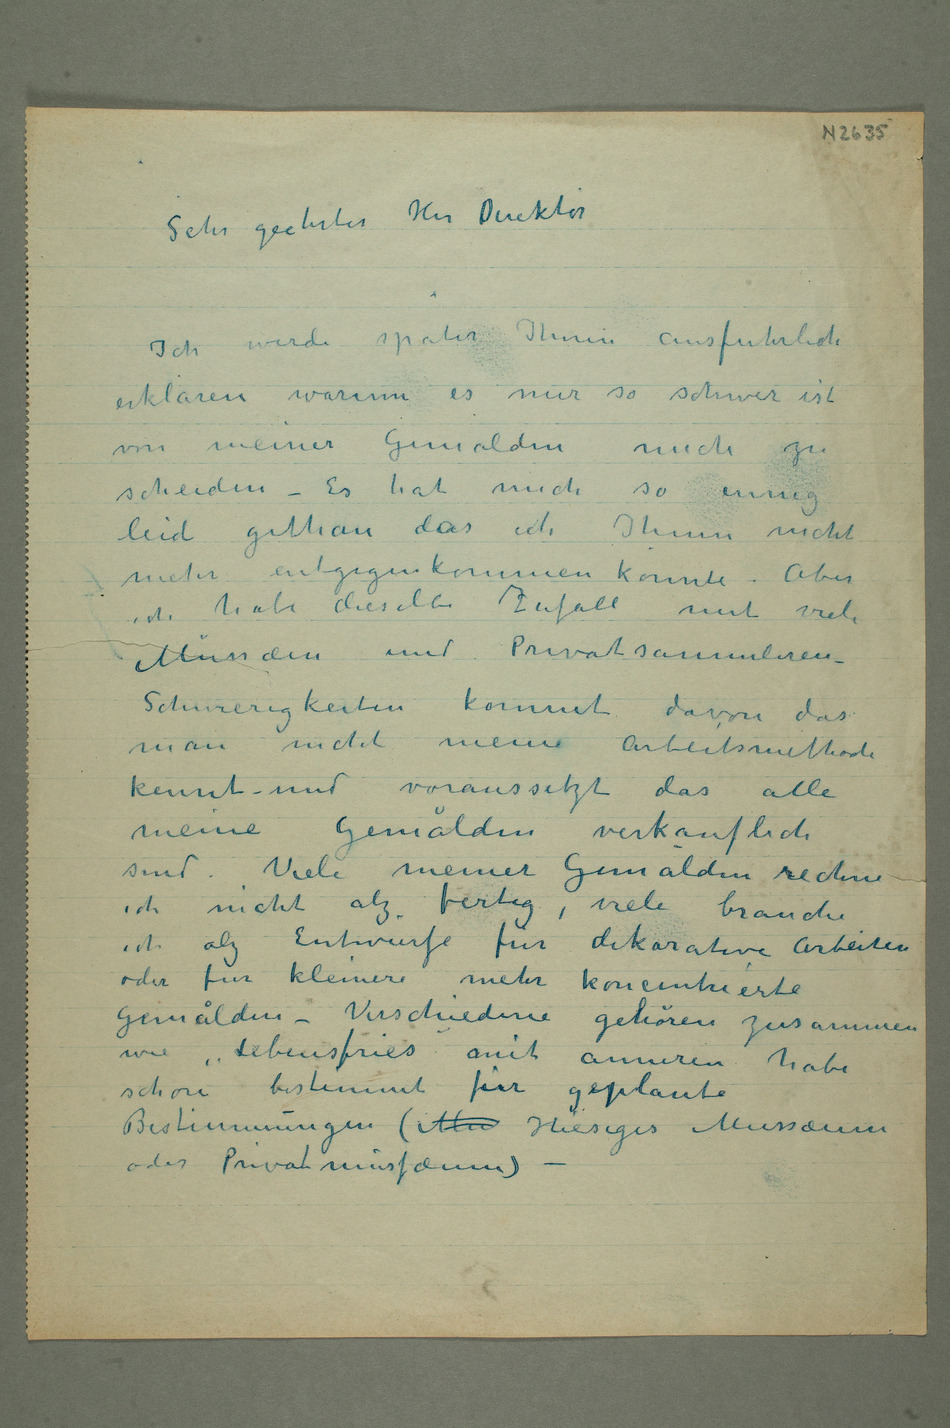 N 2635
Sehr geehrter Her Direktör
Ich werde später Ihnen ausfuhrlich
erklären warum es mir so schwer ist
von meiner Gemälden mich zu
scheiden – Es hat mich so innig
leid gethan das ich Ihnen nicht
mehr entgegenkommen konnte. Aber
ich habe dieselbe Zufall mit viele
Mussæen und Privatsammleren –
Schwierigkeiten kommt davon das
man nicht meine Arbeitsmethode
kennt – und voraussetzt das alle
meine Gemålden verkauflich
sind. Viele meiner Gemälden rechne
ich nicht alz fertig, viele brauche
ich alz Entwürfe für dekorative Arbeiten
oder für kleinere mehr koncentrierte
Gemålden – Verschiedene gehören zusammen
wie „Lebensfries mit anneren habe
schon bestimmt für geplante
Bestimmungen (Mu Hiesiges Mussæum
oder Privatmusæum) –